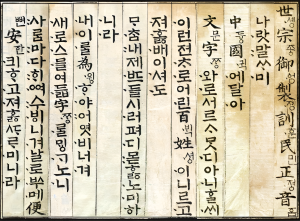 世솅宗종御엉製졩訓훈民민正졍音흠
나랏말ᄊᆞ미
中듕國귁에달아
文문字ᄍᆞᆼ와로서르ᄉᆞᄆᆞᆺ디아니ᄒᆞᆯᄊᆡ
이런젼ᄎᆞ로어린百ᄇᆡᆨ姓셩이니르고
져호ᇙ배이셔도
ᄆᆞᄎᆞᆷ내제ᄠᅳ들시러펴디몯ᄒᆞᇙ노미하
니라
내이ᄅᆞᆯ爲윙ᄒᆞ야어엿비너겨
새로스믈여듧字ᄍᆞᆼᄅᆞᆯᄆᆡᇰᄀᆞ노니
사ᄅᆞᆷ마다ᄒᆡᅇᅧ수ᄫᅵ니겨날로ᄡᅮ메便
뼌安ᅙᅡᆫ킈ᄒᆞ고져ᄒᆞᇙᄯᆞᄅᆞ미니라